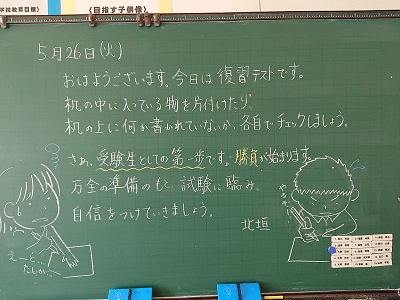 学校教育目標)
〈目指す子供像〉
5月26日(火)
おはようございます。今日は復習テストです。
机の中に入っている物を片付けたり、
机の上に何か書かれていないか、各自でチェックしましょう。
さぁ、受験生としての第一歩です。勝負が始まります。
万全の準備のもと、試験に臨み、
自信をつけていきましょう。
北垣
えーと…
たしか…